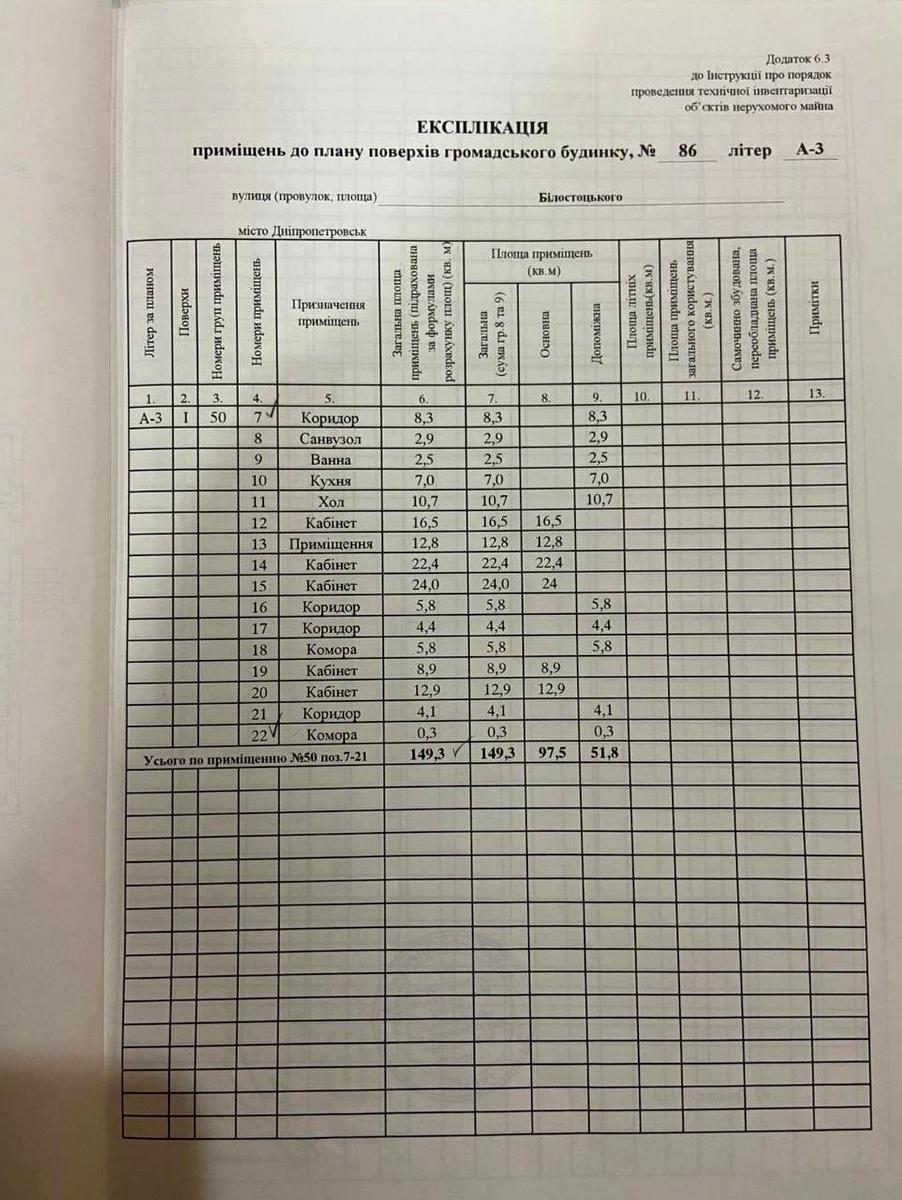 Додаток 6.3
до Інструкції про порядок
проведення технічної інвентаризації
об'єктів нерухомого майна
ЕКСПЛІКАЦІЯ
приміщень до плану поверхів громадського будинку, № 86 літер А-3
вулиця (провулок, площа) Білостоцького
місто Дніпропетровськ
Літер за планом
Поверхи
Номери груп приміщень
Номери приміщень
Призначення приміщень
Загальна площа приміщень (підрахована за формулами розрахунку площ) (кв. м)
Площа приміщень (кв.м)
Загальна (сума гр.8 та 9)
Основна
Допоміжна
Площа літніх приміщень(кв.м)
Площа приміщень загального користування (кв.м.)
Самочинно збудована, переобладнана площа приміщень (кв.м.)
Примітки
1. 2. 3. 4. 5. 6. 7. 8. 9. 10. 11. 12. 13.
А-3 I 50 7 Коридор 8,3 8,3 8,3
8 Санвузол 2,9 2,9 2,9
9 Ванна 2,5 2,5 2,5
10 Кухня 7,0 7,0 7,0
11 Хол 10,7 10,7 10,7
12 Кабінет 16,5 16,5 16,5
13 Приміщення 12,8 12,8 12,8
14 Кабінет 22,4 22,4 22,4
15 Кабінет 24,0 24,0 24
16 Коридор 5,8 5,8 5,8
17 Коридор 4,4 4,4 4,4
18 Комора 5,8 5,8 5,8
19 Кабінет 8,9 8,9 8,9
20 Кабінет 12,9 12,9 12,9
21 Коридор 4,1 4,1 4,1
22 Комора 0,3 0,3 0,3
Усього по приміщенню №50 поз.7-21 149,3 149,3 97,5 51,8